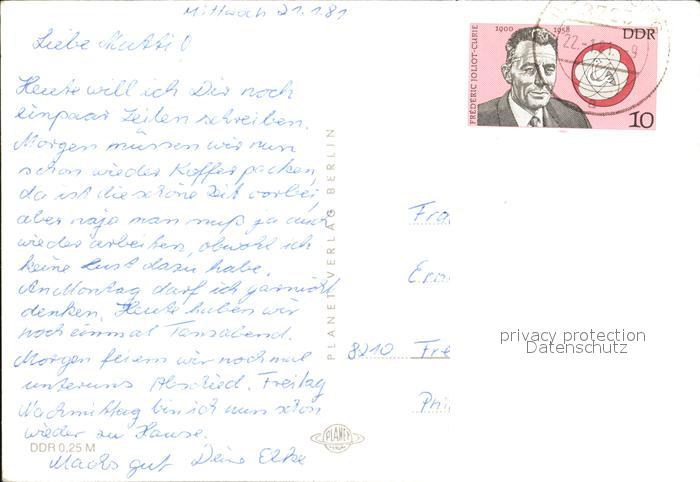 Mittwoch 21.1.81
Liebe Mutti!
Heute will ich Dir noch
einpaar Zeilen schreiben.
Morgen müssen wir nun
schon wieder Koffer packen,
da ist die schöne Zeit vorbei
aber naja man muß ja auch
wieder arbeiten, obwohl ich
keine Lust dazu habe.
An Montag darf ich garnicht
denken. Heute haben wir
noch einmal Tanzabend.
Morgen feiern wir noch mal
unteruns Abschied. Freitag
Nachmittag bin ich nun schon
wieder zu Hause.
Machs gut Deine Elke
DDR 0,25 M
PLANET-VERLAG BERLIN
PLANET
FRÉDÉRIC JOLIOT-CURIE
1900 1958
DDR
10
22.-1.81-9
Fra
Ern
8210 Fre
Phi
privacy protection
Datenschutz